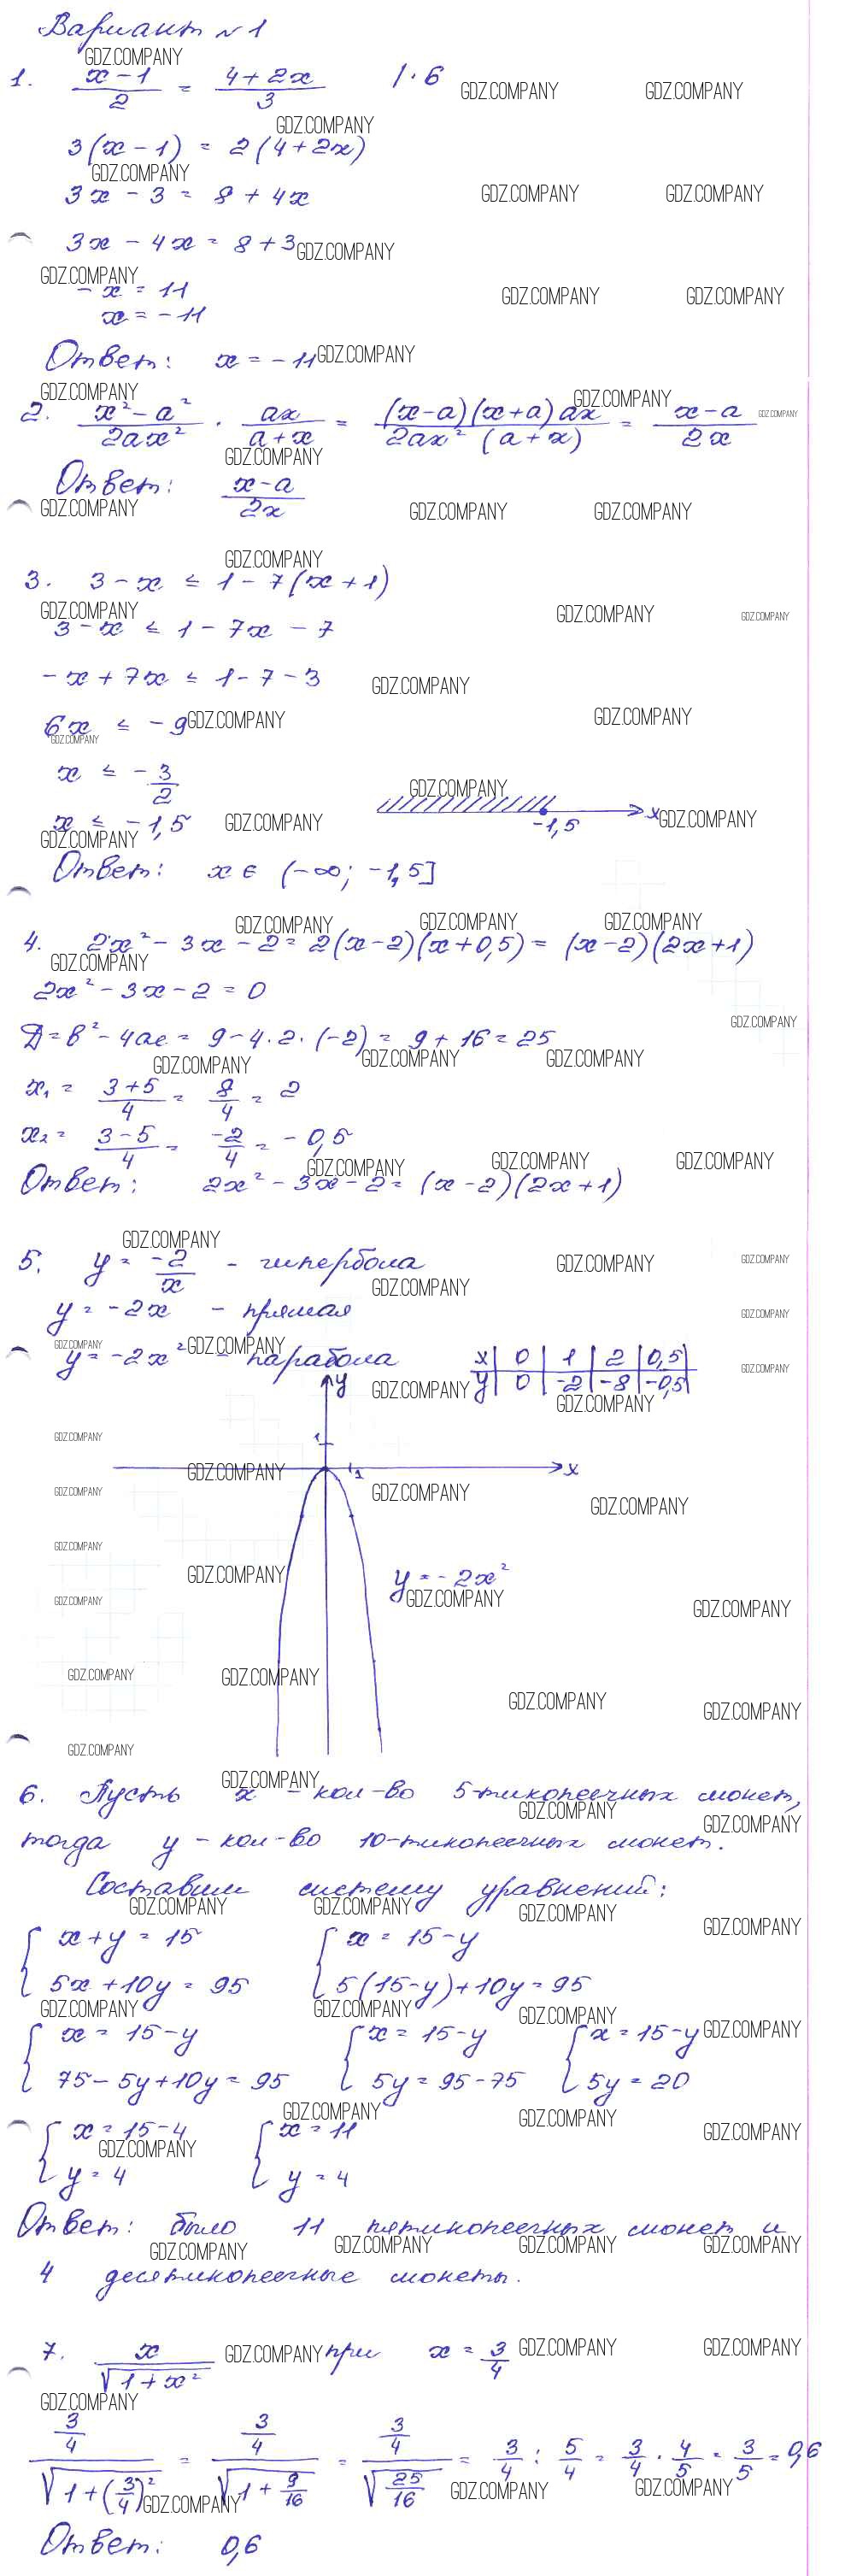 Вариант №1
1. (x-1)/2 = (4+2x)/3 |·6
3(x-1) = 2(4+2x)
3x-3 = 8+4x
3x-4x = 8+3
-x = 11
x = -11
Ответ: x = -11
2. (x²-a²)/(2ax²) · ax/(a+x) = ((x-a)(x+a)ax)/(2ax²(a+x)) = (x-a)/(2x)
Ответ: (x-a)/(2x)
3. 3-x ≤ 1-7(x+1)
3-x ≤ 1-7x-7
-x+7x ≤ 1-7-3
6x ≤ -9
x ≤ -3/2
x ≤ -1,5
-1,5 x
Ответ: x ∈ (-∞; -1,5]
4. 2x²-3x-2 = 2(x-2)(x+0,5) = (x-2)(2x+1)
2x²-3x-2 = 0
Д = b²-4ac = 9-4·2·(-2) = 9+16 = 25
x₁ = (3+5)/4 = 8/4 = 2
x₂ = (3-5)/4 = -2/4 = -0,5
Ответ: 2x²-3x-2 = (x-2)(2x+1)
5. y = -2/x - гипербола
y = -2x - прямая
y = -2x² - парабола
x | 0 | 1 | 2 | 0,5
y | 0 | -2 | -8 | -0,5
y
1
1 x
y = -2x²
6. Пусть x - кол-во 5-тикопеечных монет,
тогда y - кол-во 10-тикопеечных монет.
Составим систему уравнений:
{ x+y = 15 { x = 15-y
{ 5x+10y = 95 { 5(15-y)+10y = 95
{ x = 15-y { x = 15-y { x = 15-y
{ 75-5y+10y = 95 { 5y = 95-75 { 5y = 20
{ x = 15-4 { x = 11
{ y = 4 { y = 4
Ответ: было 11 пятикопеечных монет и
4 десятикопеечные монеты.
7. x/√(1+x²) при x = 3/4
(3/4)/√(1+(3/4)²) = (3/4)/√(1+9/16) = (3/4)/√(25/16) = 3/4 : 5/4 = 3/4 · 4/5 = 3/5 = 0,6
Ответ: 0,6
GDZ.COMPANY